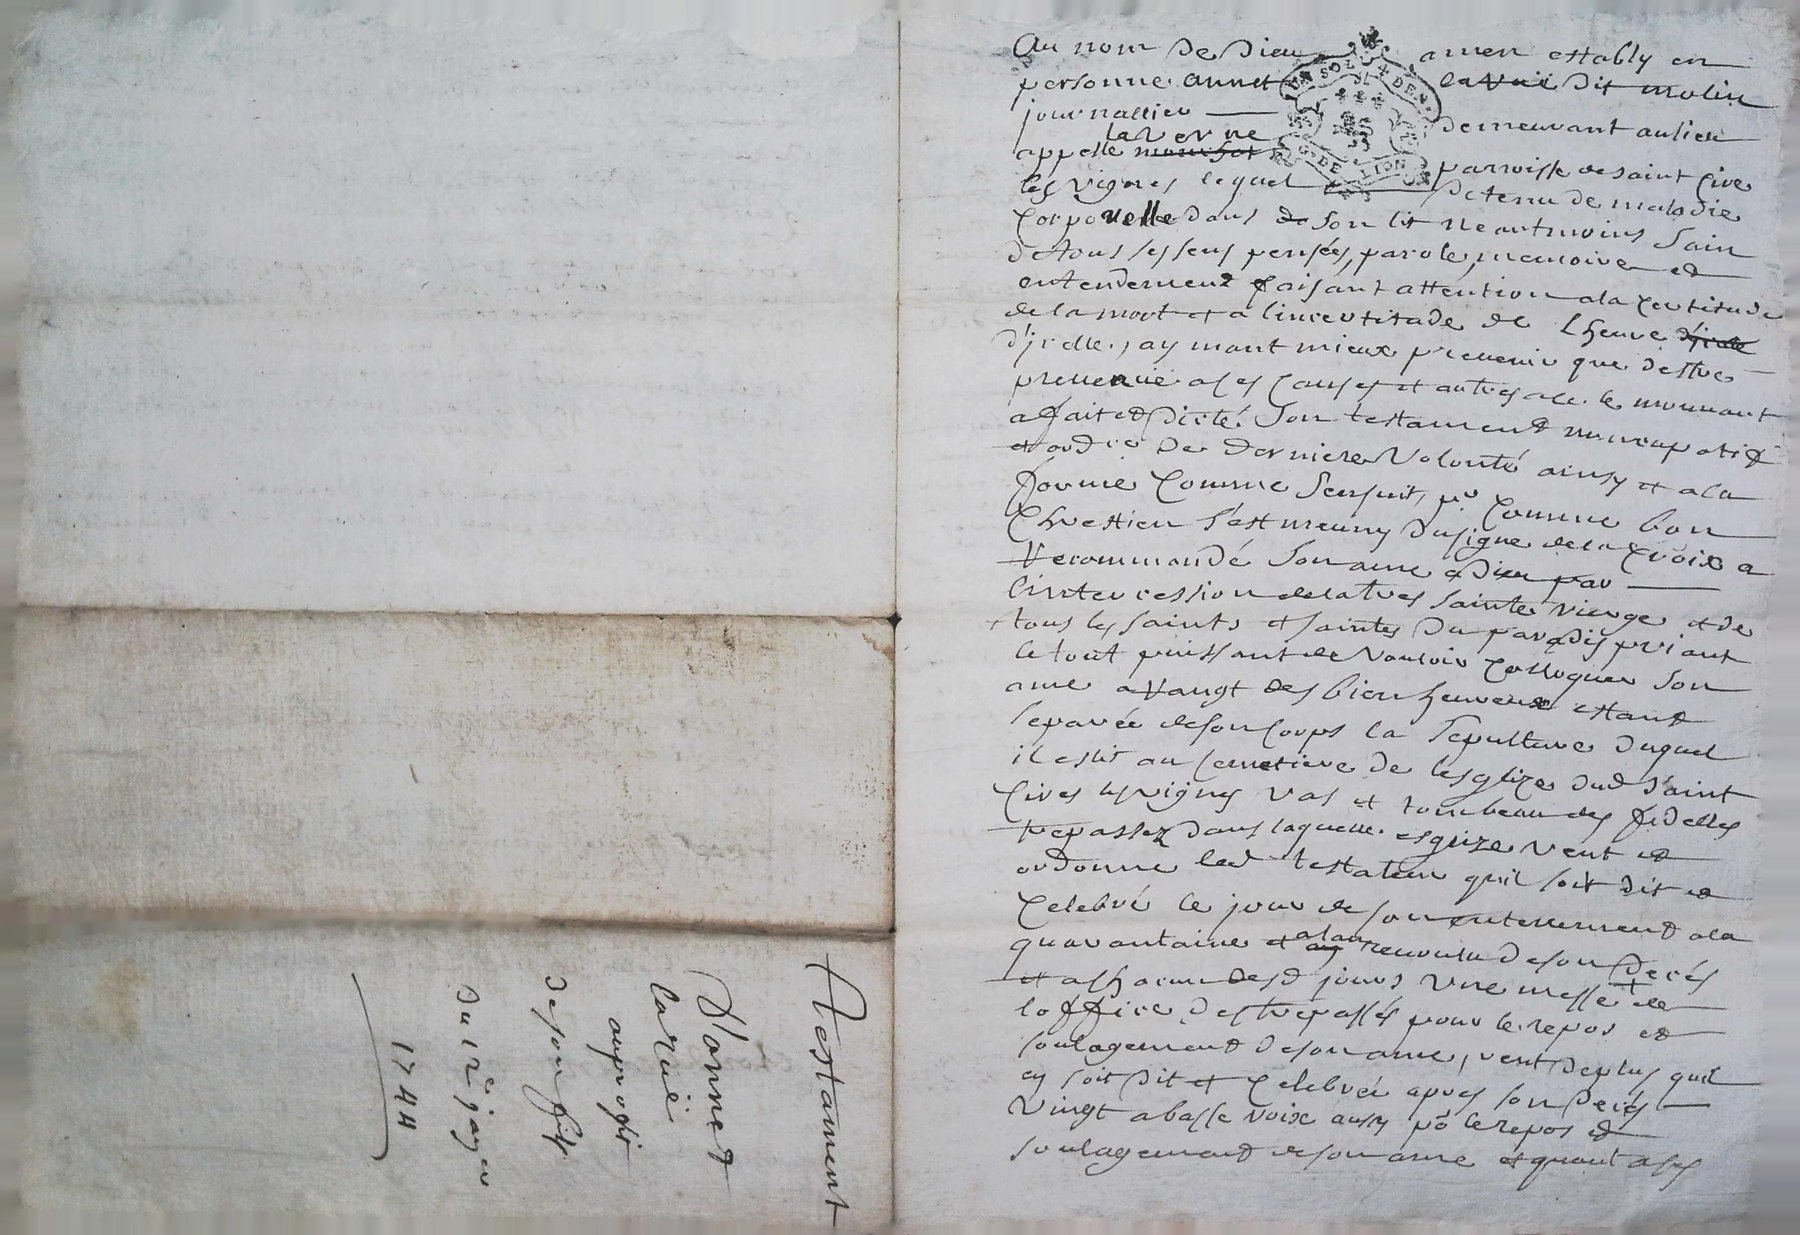 Testament
D'annet
laruë
auproffit
de son fils
du 12e janv
1744
Au nom de Dieu amen estably en
personne annet laruë dit molin
journallier demeurant au lieu
la Verne
appellé
les vignes lequel parroisse de saint Cire
detenu de maladie
Corporelle dans son lit neantmoins sain
de tous ses sens pensées, parole, memoire et
entendement faisant attention a la Certitude
de la mort et a lincertitude de Lheure
d'jcelle, aymant mieux prevenir que destre
prevenue a ces Causes et autres a ce le mouvant
a fait et dicté Son testament nuncupatif
et ordce de derniere Volonté ainsy et a la
forme Comme Sensuit, pr Comme bon
Chrestien s'est muny du signe de la Croix a
Recommandé Son ame a Dieu par
lintercession de la tres sainte vierge et de
tous les saints et saintes du paradis priant
le tout puissant de Vouloir Colloquer Son
ame a Rangt des bienheureux estant
separée de son Corps la Sepulture duquel
il eslit au Cemetiere de lesglize dud Saint
Cires les vignes Vas et tombeau des fidelles
trepassez dans laquelle esglize veut et
ordonne led testateur quil soit dit et
Celebré le jour de son enterrement a la
quarantaine et a lan revoulu de son decés
et a Chacun desd jours Une messe et de
loffice des trepassés pour le repos et
soulagement de son ame, veut de plus quil
y soit dit et Celebrée apres son decés
Vingt a basse voix aussy po le repos et
soulagement de son ame et quant a ses
G. DE LION